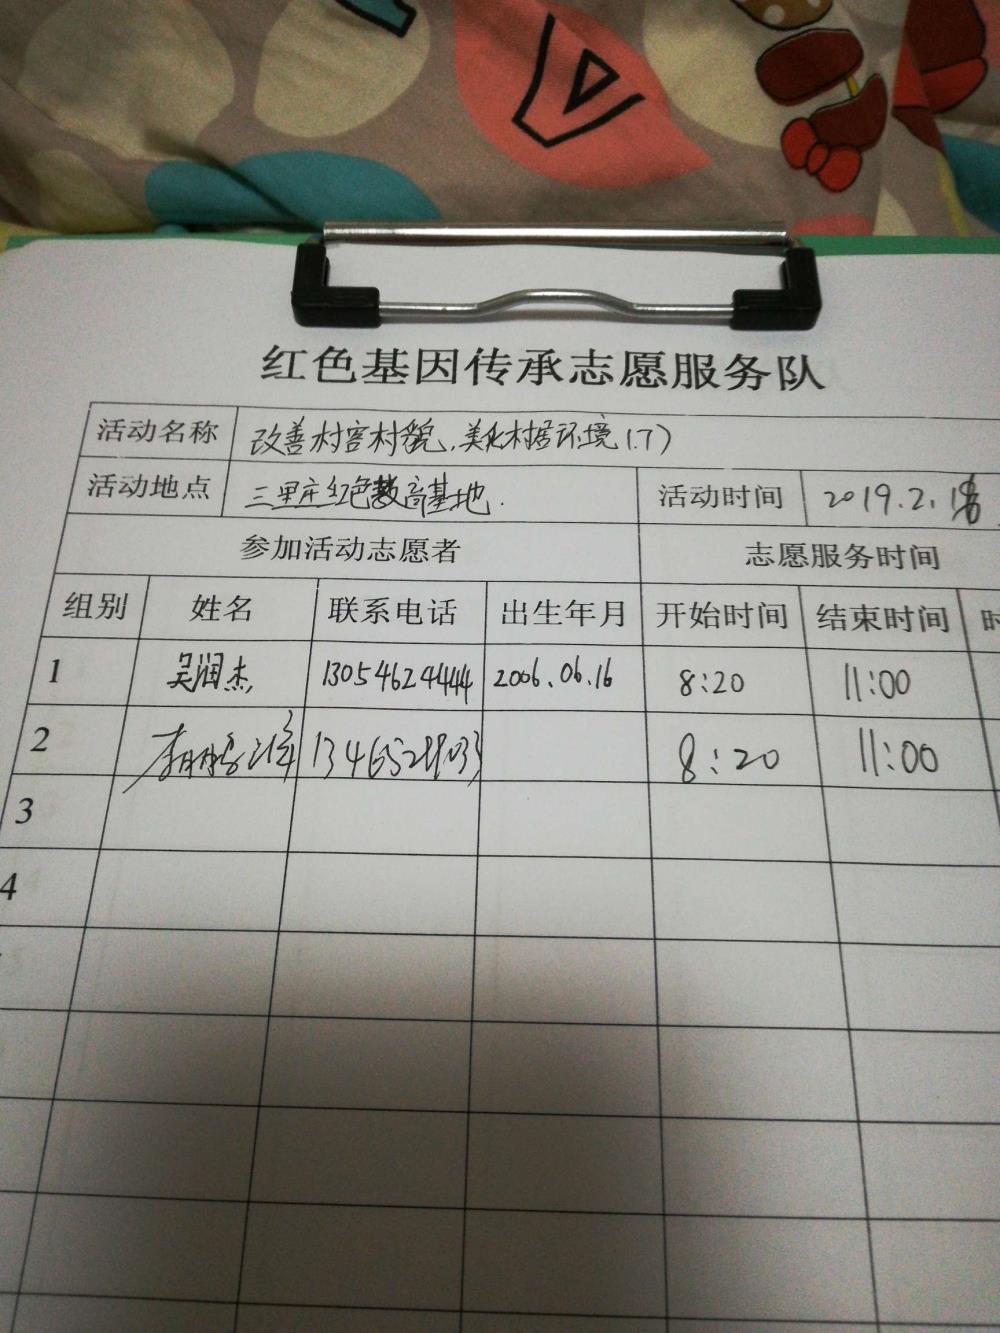 红色基因传承志愿服务队
活动名称 改善村容村貌,美化村居环境(.7)
活动地点 三里庄红色教育基地. 活动时间 2019.2.
参加活动志愿者 志愿服务时间
组别 姓名 联系电话 出生年月 开始时间 结束时间 时
1 吴润杰 13054624444 2006.06.16 8:20 11:00
2 8:20 11:00
3
4